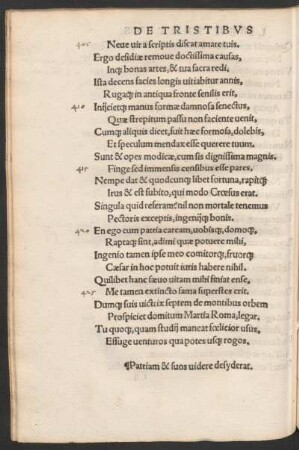 DE TRISTIBVS
405 Neue uir a scriptis discat amare tuis.
Ergo desidiæ remoue doctissima causas,
Inq; bonas artes, & tua sacra redi.
Ista decens facies longis uitiabitur annis,
Rugaq; in antiqua fronte senilis erit,
410 Inijcietq; manus formæ damnosa senectus,
Quæ strepitum passu non faciente uenit.
Cumq; aliquis dicet, fuit hæc formosa, dolebis,
Et speculum mendax esse querere tuum.
Sunt & opes modicæ, cum sis dignissima magnis.
415 Finge sed immensis censibus esse pares,
Nempe dat & quodcunq; libet fortuna, rapitq;
Irus & est subito, qui modo Crœsus erat.
Singula quid referam? nil non mortale tenemus
Pectoris exceptis, ingenijq; bonis.
420 En ego cum patria caream, uobisq;, domoq;,
Raptaq; sint, adimi quæ potuere mihi,
Ingenio tamen ipse meo comitorq;, fruorq;
Cæsar in hoc potuit iuris habere nihil.
Quilibet hanc sæuo uitam mihi finiat ense,
425 Me tamen extincto fama superstes erit.
Dumq; suis uictrix septem de montibus orbem
Prospiciet domitum Martia Roma, legar.
Tu quoq;, quam studij maneat fœlicior usus,
Effuge uenturos qua potes usq; rogos.
¶Patriam & suos uidere desyderat.